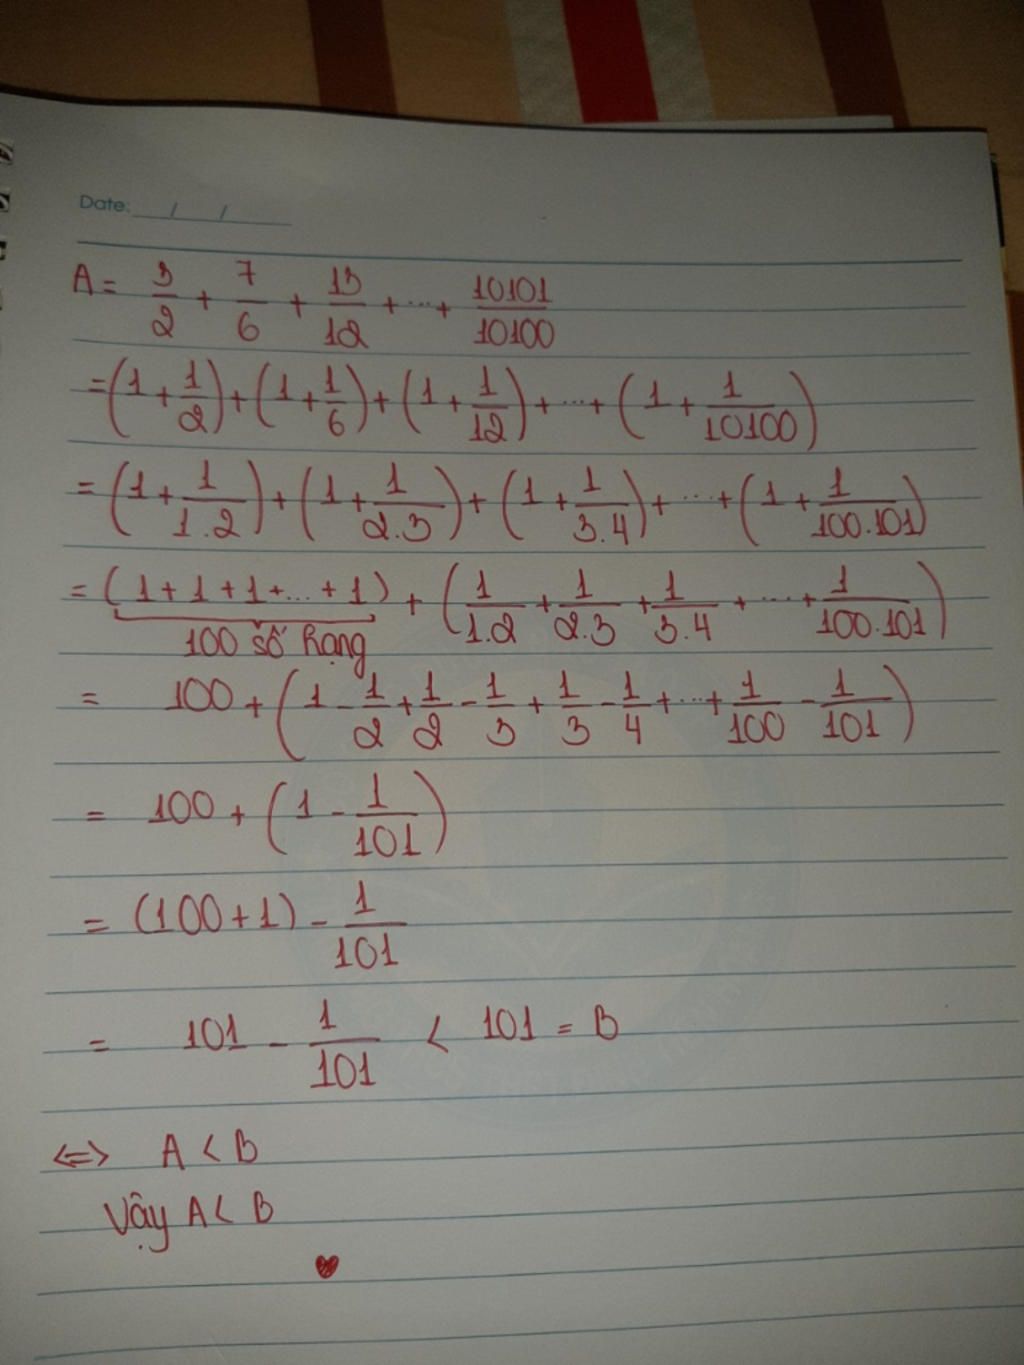 Date: / /
A = 3/2 + 7/6 + 13/12 + ... + 10101/10100
= (1 + 1/2) + (1 + 1/6) + (1 + 1/12) + ... + (1 + 1/10100)
= (1 + 1/1.2) + (1 + 1/2.3) + (1 + 1/3.4) + ... + (1 + 1/100.101)
= (1 + 1 + 1 + ... + 1) + (1/1.2 + 1/2.3 + 1/3.4 + ... + 1/100.101)
100 số hạng
= 100 + (1 - 1/2 + 1/2 - 1/3 + 1/3 - 1/4 + ... + 1/100 - 1/101)
= 100 + (1 - 1/101)
= (100 + 1) - 1/101
= 101 - 1/101 < 101 = B
<=> A < B
Vậy A < B